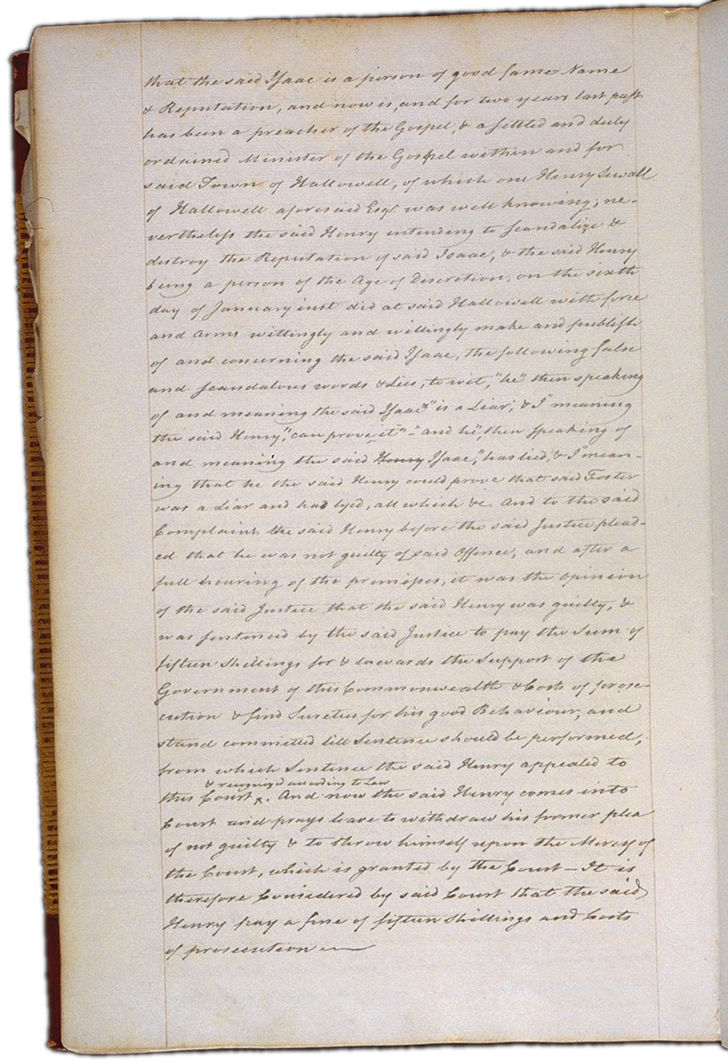 that the said Isaac is a person of good fame Name
& Reputation, and now is, and for two years last past
has been a preacher of the Gospel, & a settled and duly
ordained Minister of the Gospel within and for
said Town of Hallowell, of which one Henry Sewall
of Hallowell aforesaid Esqr. was well knowing; ne-
vertheless the said Henry intending to scandalize &
destroy the Reputation of said Isaac, & the said Henry
being a person of the Age of Discretion, on the sixth
day of January inst. did at said Hallowell with force
and Arms wittingly and willingly make and publish
of and concerning the said Isaac, the following false
and scandalous words & Lies, to wit, "he" then speaking
of and meaning the said Isaac "is a Liar", & I" meaning
the said Henry," can prove it" - "and he", then speaking of
and meaning the said Henry Isaac," has lied, & I" mean-
ing that he the said Henry could prove that said Foster
was a Liar and had lyed, all which &c. And to the said
Complaint the said Henry before the said Justice plead-
ed that he was not guilty of said Offence, and after a
full hearing of the premises, it was the opinion
of the said Justice that the said Henry was guilty, &
was sentenced by the said Justice to pay the Sum of
fifteen shillings for & towards the Support of the
Government of this Commonwealth & Costs of prose-
cution & find Sureties for his good Behaviour, and
stand committed till Sentence should be performed,
from which Sentence the said Henry appealed to
& recognized according to Law
this Court ^. And now the said Henry comes into
Court and prays leave to withdraw his former plea
of not guilty & to throw himself upon the Mercy of
the Court, which is granted by the Court — It is
therefore Considered by said Court that the said
Henry pay a fine of fifteen shillings and Costs
of prosecution —